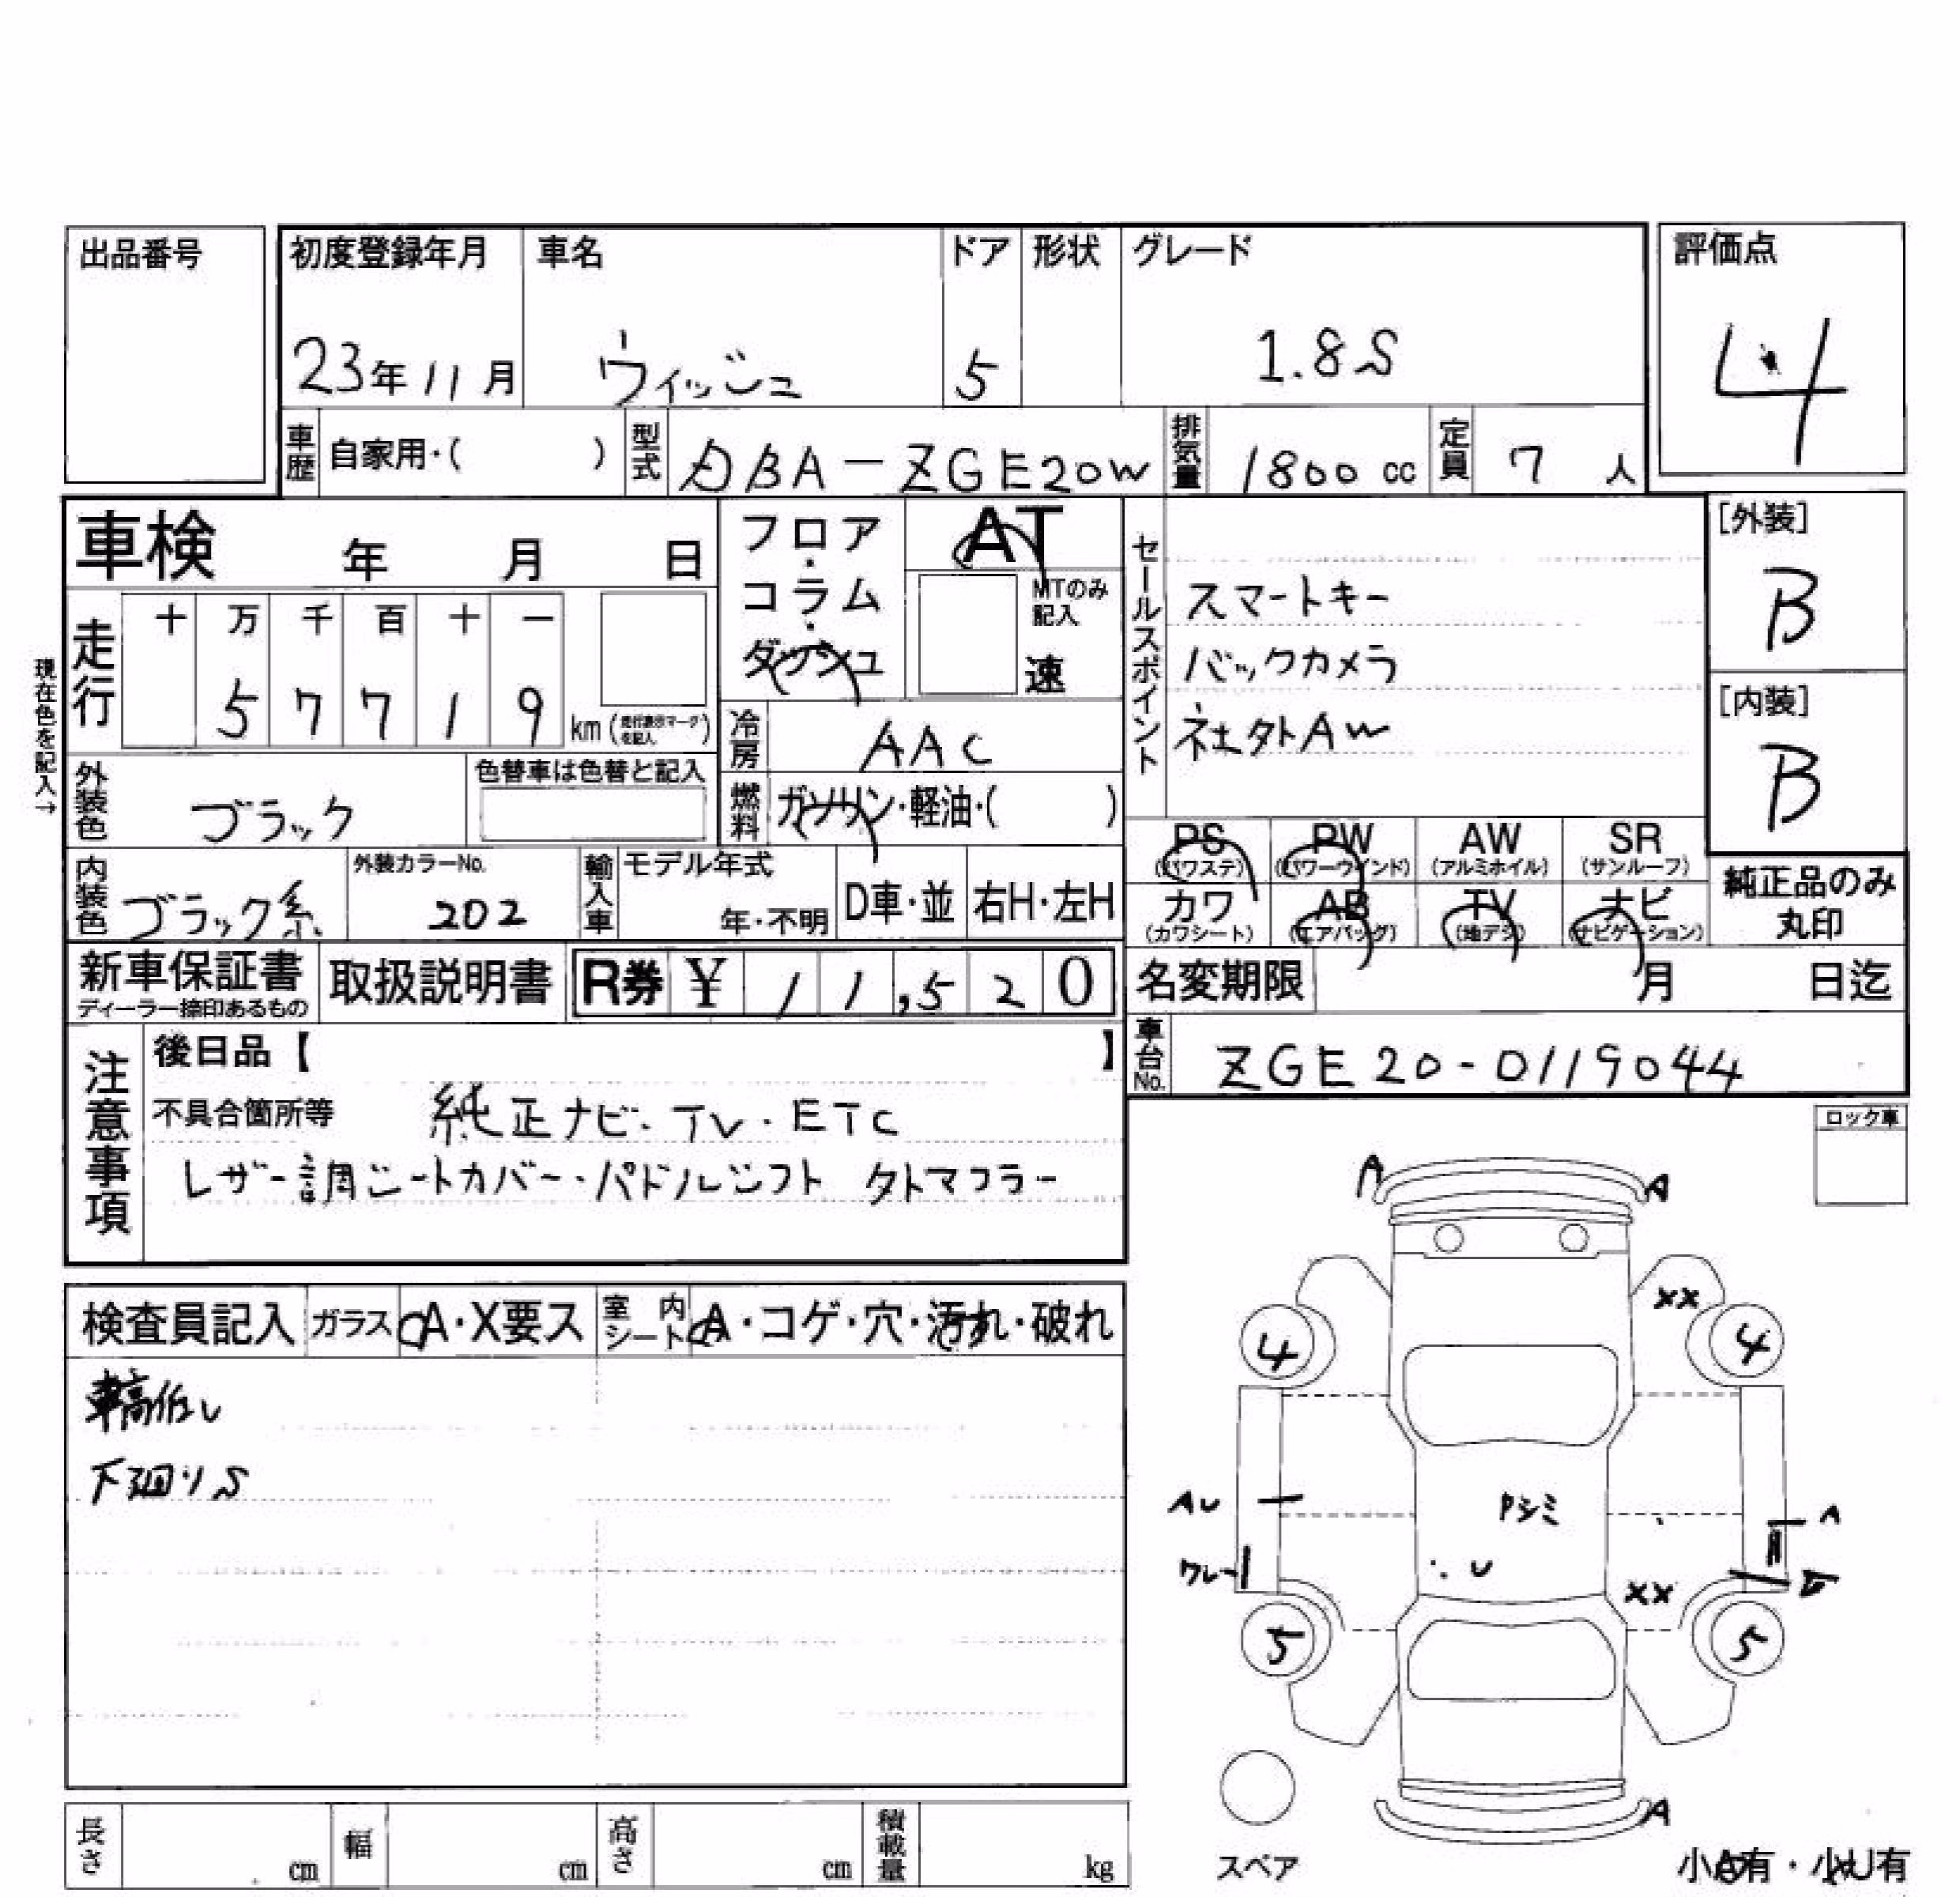 出品番号
初度登録年月
23年11月
車名
ウィッシュ
ドア
5
形状
グレード
1.8S
評価点
4
車歴
自家用・( )
型式
DBA-ZGE20W
排気量
1800 cc
定員
7 人
車検 年 月 日
フロア・コラム・ダッシュ
AT
MTのみ記入
速
セールスポイント
スマートキー
バックカメラ
社外AW
[外装]
B
[内装]
B
現在色を記入→
走行
十 万 千 百 十 一
5 7 7 1 9
km (走行表示マークを記入)
冷房
AAC
燃料
ガソリン・軽油・( )
外装色
ブラック
色替車は色替と記入
内装色
ブラック系
外装カラーNo.
202
輸入車
モデル年式
年・不明
D車・並
右H・左H
PS (パワステ)
PW (パワーウインド)
AW (アルミホイル)
SR (サンルーフ)
カワ (カワシート)
AB (エアバッグ)
TV (地デジ)
ナビ (ナビゲーション)
純正品のみ
丸印
新車保証書
ディーラー捺印あるもの
取扱説明書
R券 ¥ 11,520
名変期限 月 日迄
車台No.
ZGE20-0119044
注意事項
後日品【 】
不具合箇所等 純正ナビ・TV・ETC
レザー調シートカバー・パドルシフト 外マフラー
ロック車
検査員記入
ガラス A・X要ス
室内シート A・コゲ・穴・汚れ・破れ
車高低い
下廻りS
A
A
XX
4
4
AU
ワレ
U
XX
A
5
5
A
スペア
長さ cm
幅 cm
高さ cm
積載量 kg
小A有・小U有